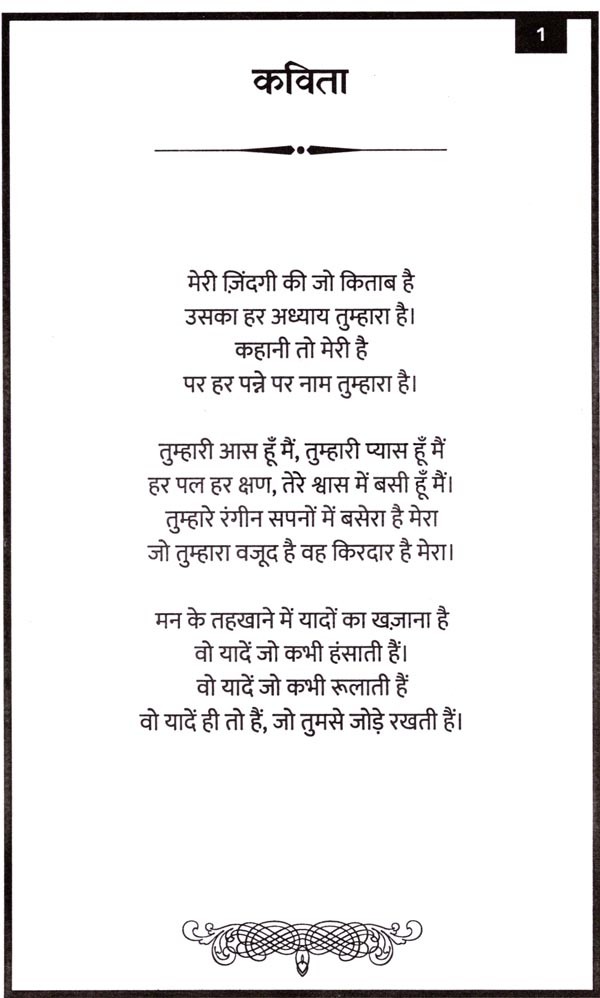 1
कविता
मेरी ज़िंदगी की जो किताब है
उसका हर अध्याय तुम्हारा है।
कहानी तो मेरी है
पर हर पन्ने पर नाम तुम्हारा है।
तुम्हारी आस हूँ मैं, तुम्हारी प्यास हूँ मैं
हर पल हर क्षण, तेरे श्वास में बसी हूँ मैं।
तुम्हारे रंगीन सपनों में बसेरा है मेरा
जो तुम्हारा वजूद है वह किरदार है मेरा।
मन के तहखाने में यादों का खज़ाना है
वो यादें जो कभी हंसाती हैं।
वो यादें जो कभी रूलाती हैं
वो यादें ही तो हैं, जो तुमसे जोड़े रखती हैं।